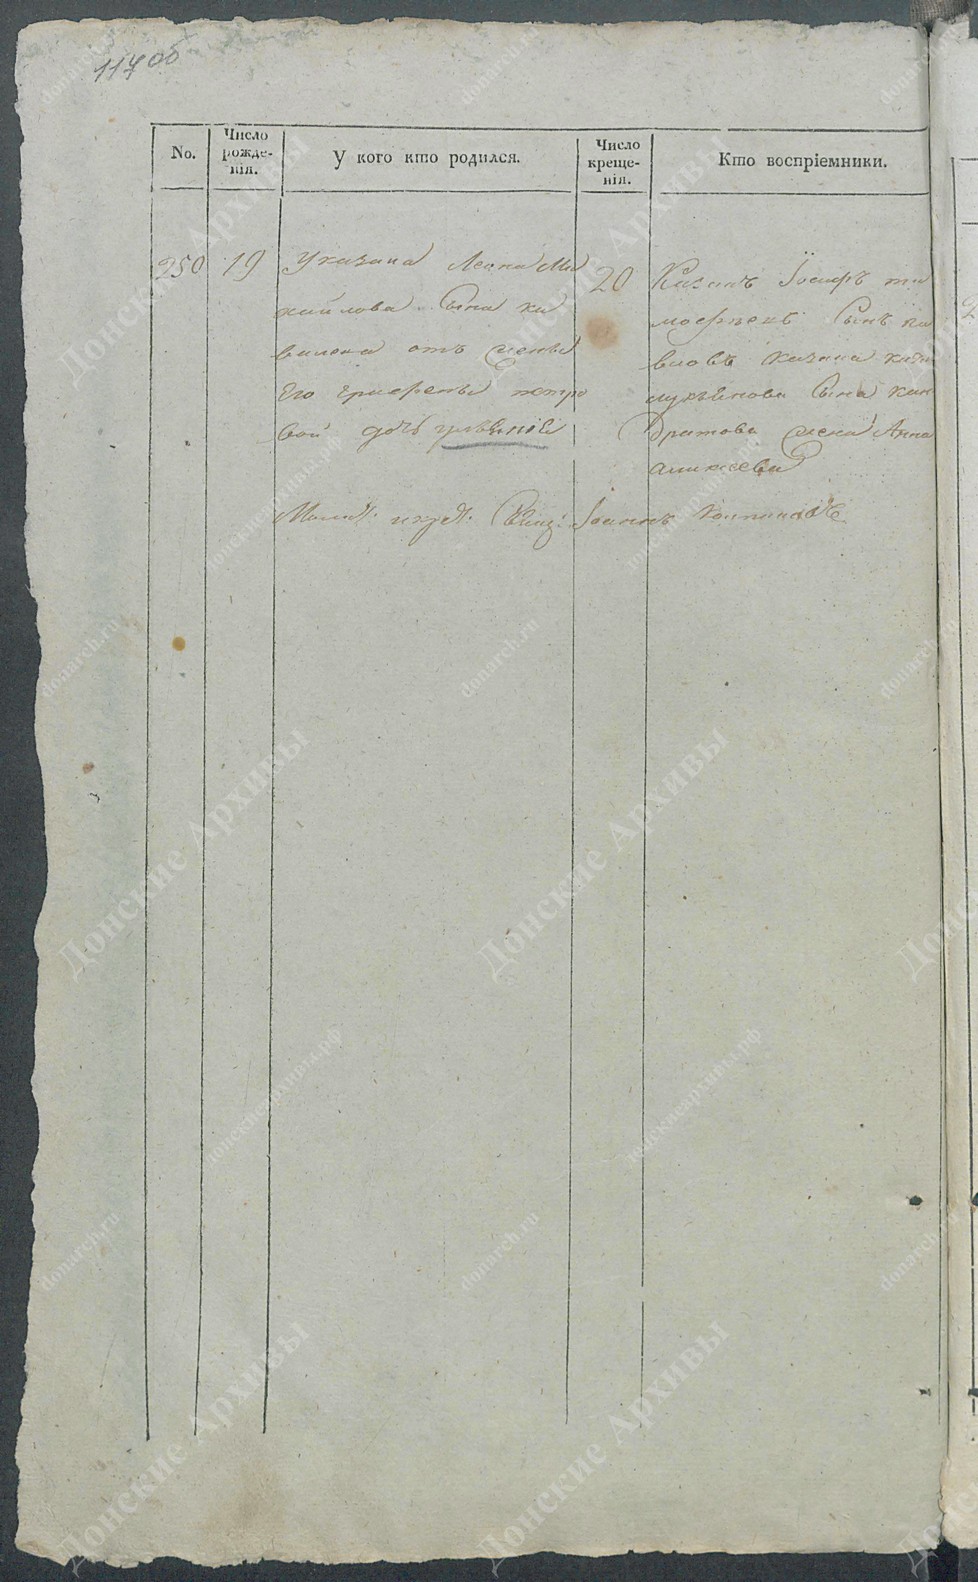 117 об
No.
Число рожде-нія.
У кого кто родился.
Число креще-нія.
Кто воспріемники.
250
19
Указака Леона Ми
хайлова Сына ка
вилена отъ жены
Его Петро
вой дочь
20
Казакъ Іосифъ ти
мофѣевъ Сынъ па
вловъ казака
Сына кон
дратова жена Анна
аликсеева
Молит: и крест: Свящ: Іоаннъ
Донские Архивы
donarch.ru
донскиеархивы.рф